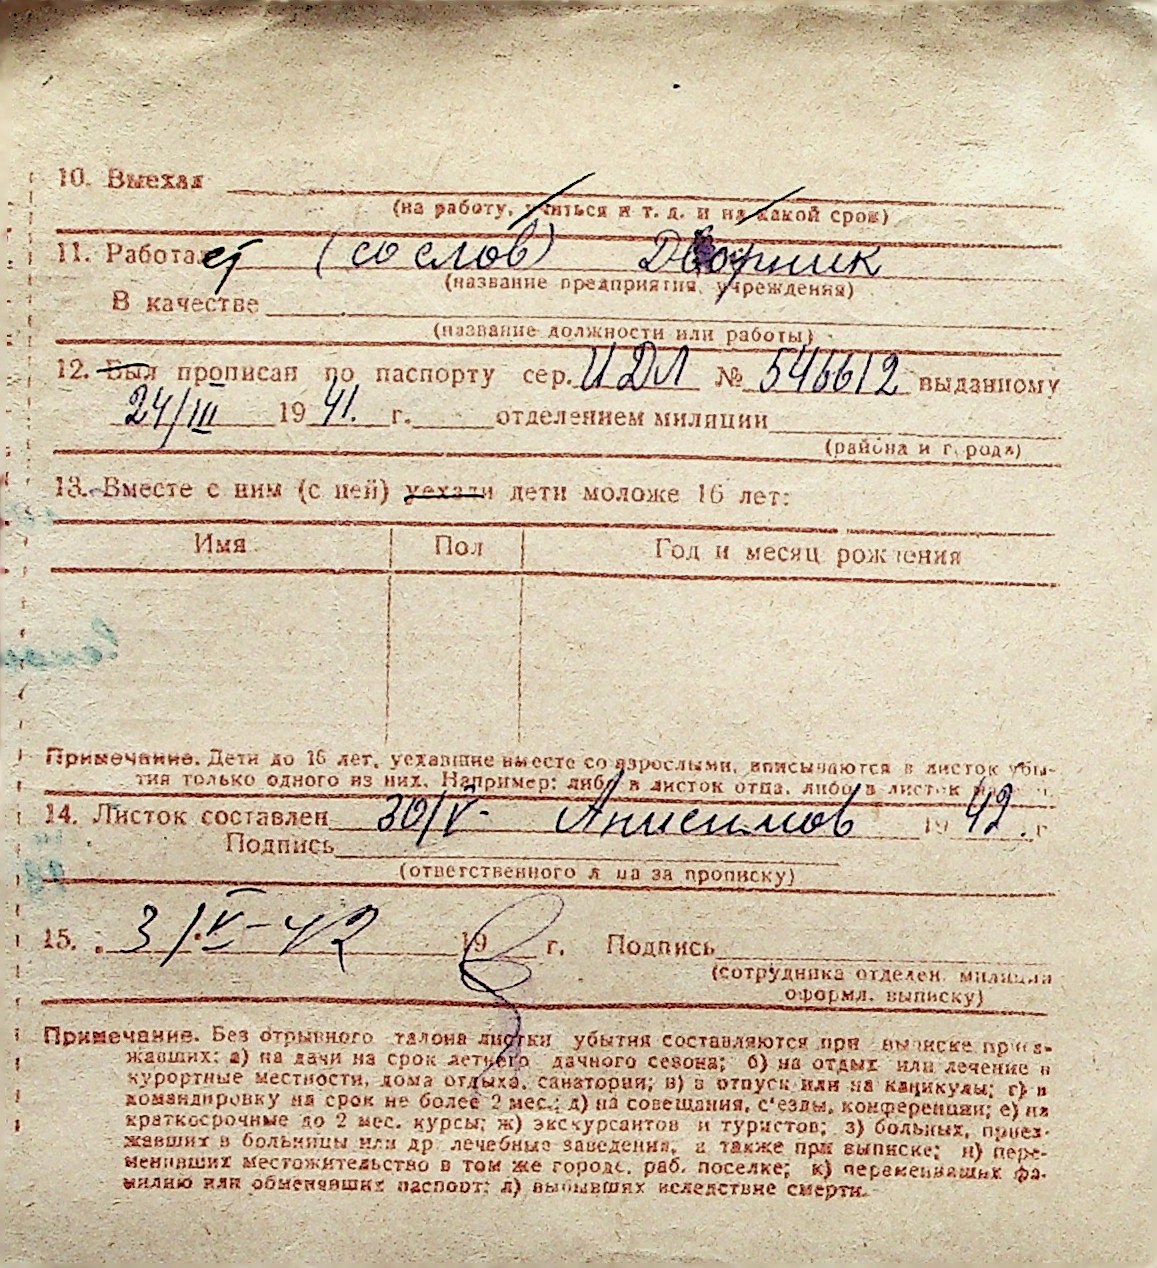 10. Выехал
(на работу, учиться и т. д. и на какой срок)
11. Работает (со слов) Дворник
(название предприятия, учреждения)
В качестве
(название должности или работы)
12. Был прописан по паспорту сер. И ДЛ № 546612 выданному
24/III 19 41. г. отделением милиции
(района и города)
13. Вместе с ним (с ней) уехали дети моложе 16 лет:
Имя Пол Год и месяц рождения
Примечание. Дети до 16 лет, уехавшие вместе со взрослыми, вписываются в листок убы-
тия только одного из них. Например: либо в листок отца, либо в листок
14. Листок составлен 30/V. Анисимов 19 42. г
Подпись
(ответственного лица за прописку)
15. 3/V-42 19 г. Подпись
(сотрудника отделен. милиции
оформл. выписку)
Примечание. Без отрывного талона листки убытия составляются при выписке приез-
жавших: а) на дачи на срок летнего дачного сезона; б) на отдых или лечение в
курортные местности, дома отдыха, санатории; в) в отпуск или на каникулы; г) в
командировку на срок не более 2 мес.; д) на совещания, с'езды, конференции; е) на
краткосрочные до 2 мес. курсы; ж) экскурсантов и туристов; з) больных, приез-
жавших в больницы или др лечебные заведения, а также при выписке; и) пере-
менивших местожительство в том же городе, раб. поселке; к) переменивших фа-
милию или обменявших паспорт; л) выбывших вследствие смерти.